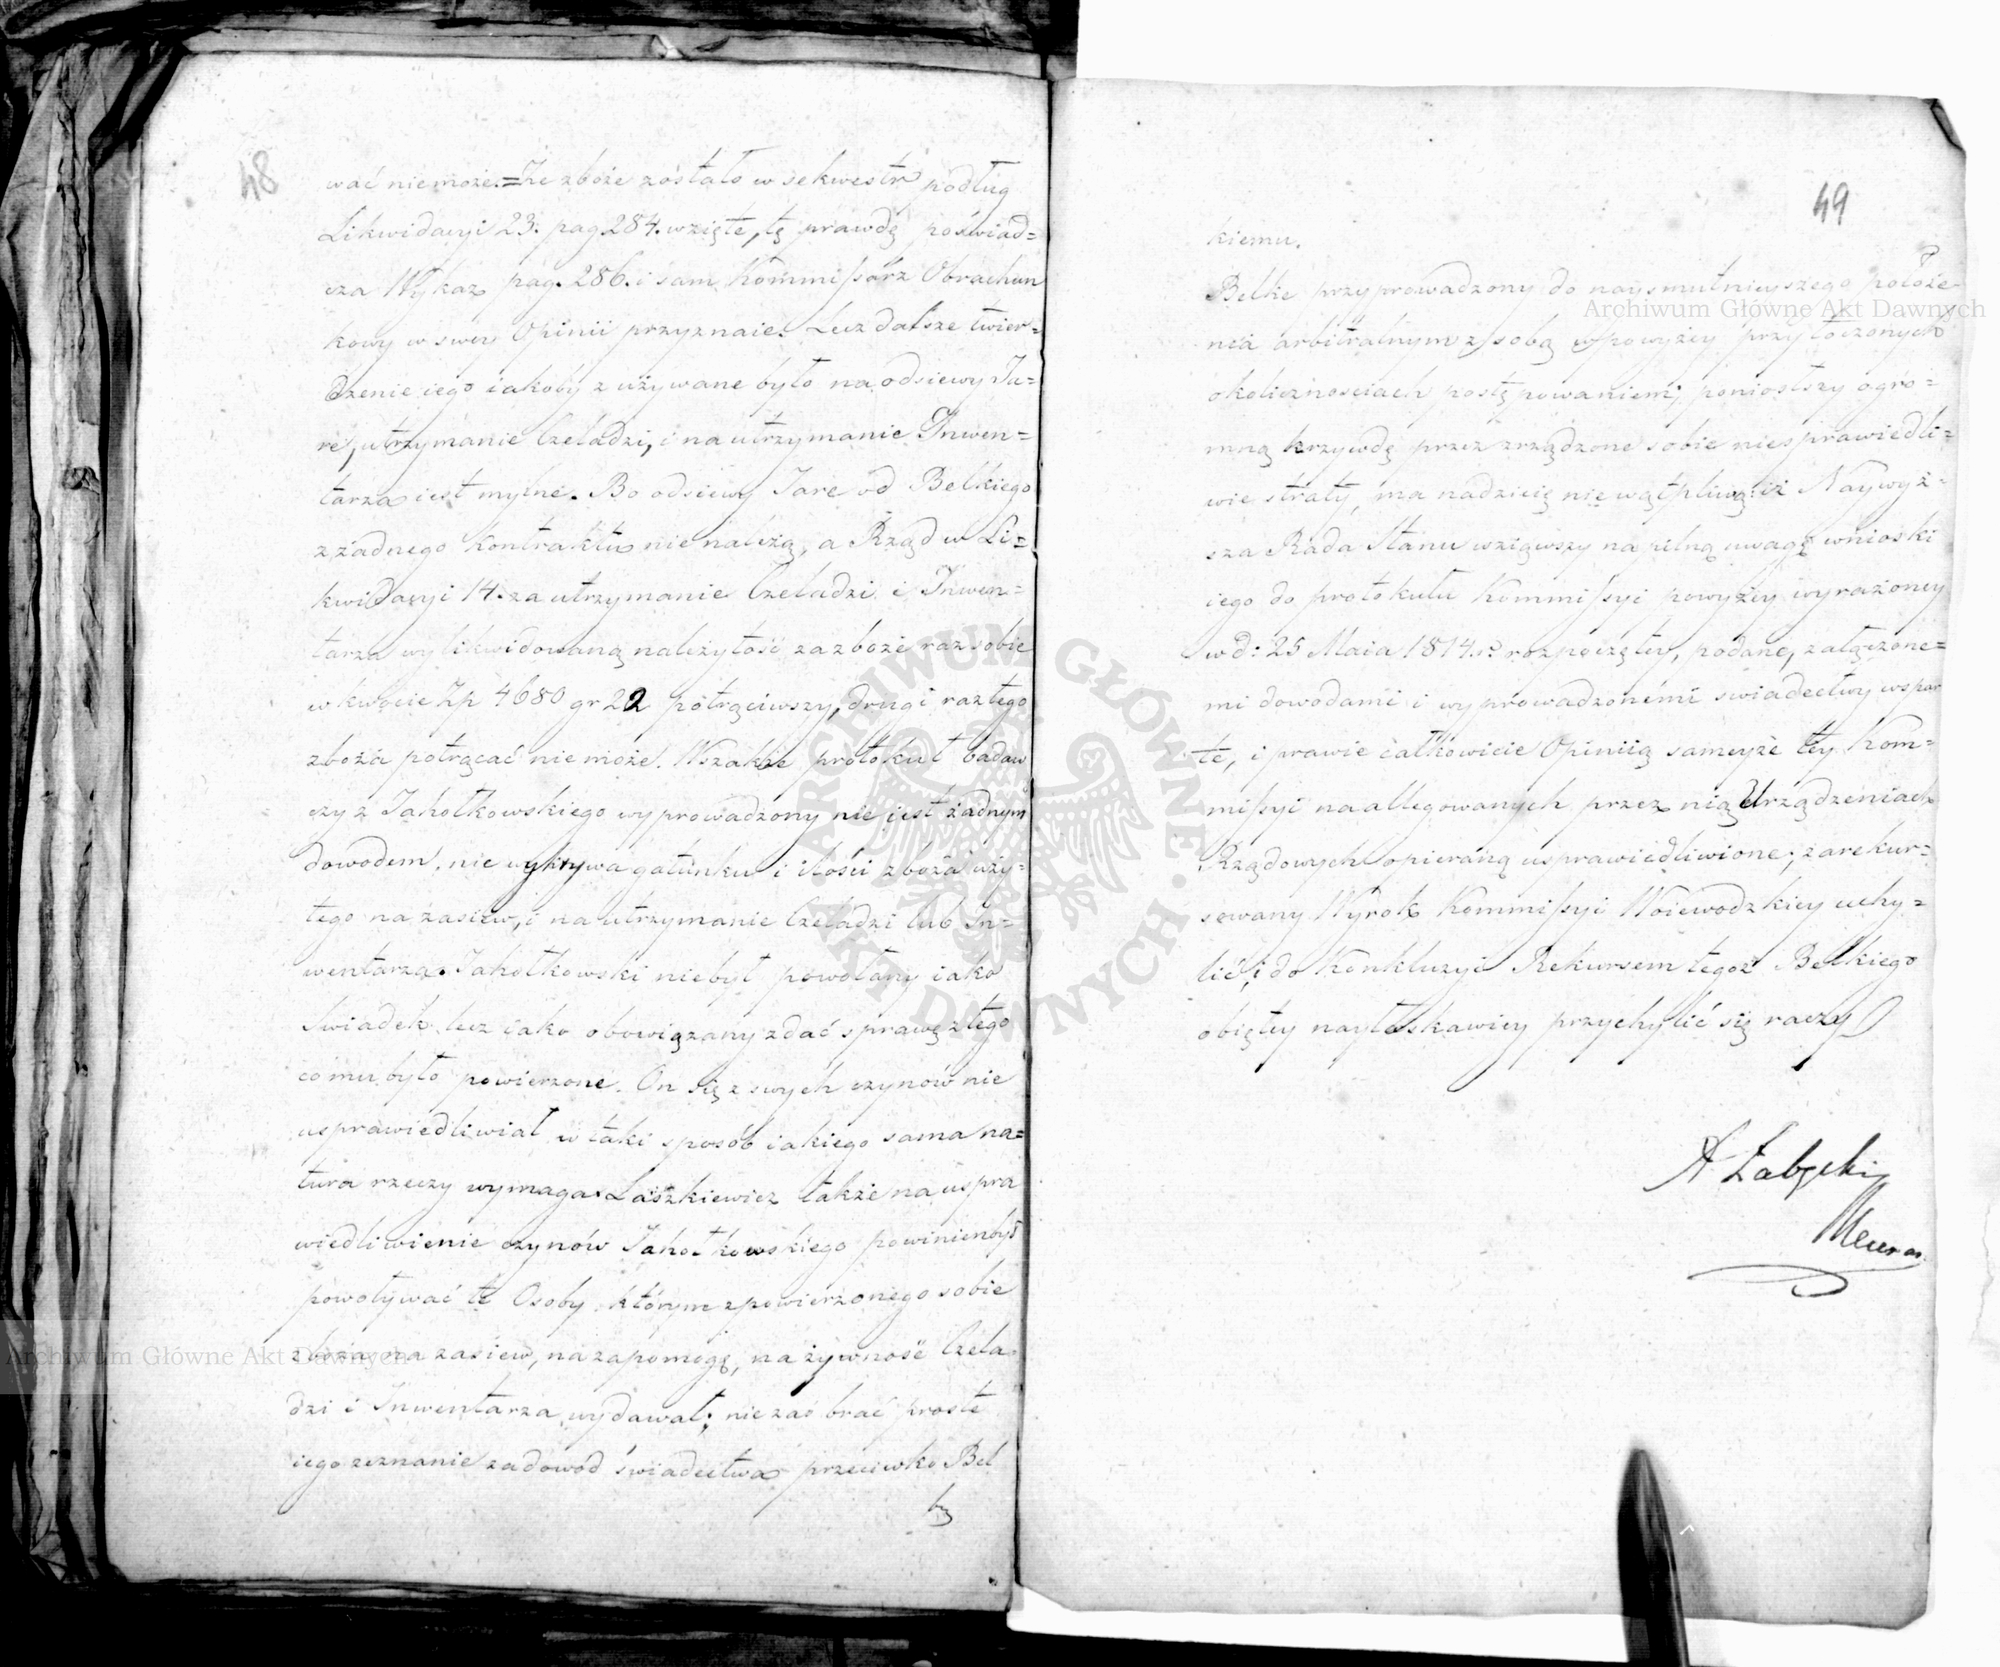 48
wać niemoże. = Że zboże zostało w sekwestr podług
Likwidacyi 23. pag 284. wzięte, tę prawdę poświad=
cza Wykaz pag. 286. i sam Kommissarz Obrachun
kowy w swey Opinii przyznaie. Lecz dalsze twier=
dzenie iego iakoby zużywane było na odsiewy Ja=
re, utrzymanie Czeladzi, i na utrzymanie Inwen=
tarza iest mylne. Bo odsiewy Jare od Belkiego
z żadnego Kontraktu nie należą, a Rząd w Li=
kwidacyi 14. za utrzymanie Czeladzi i Inwen=
tarza wylikwidowaną należytość za zboże raz sobie
w kwocie Zp 4680 gr 22 potrąciwszy, drugi raz tego
zboża potrącać nie może. Wszakże protokuł badaw
czy z Jahołkowskiego wyprowadzony nie iest żadnym
dowodem, nie wykrywa gatunku i ilości zboża uży=
tego na zasiew, i na utrzymanie Czeladzi lub In=
wentarza. Jahołkowski niebył powołany iako
Swiadek lecz iako obowiązany zdać sprawę z tego
co mu było powierzone. On się z swych czynów nie
usprawiedliwiał w taki sposób iakiego sama na=
tura rzeczy wymaga. Laszkiewicz także na uspra
wiedliwienie czynów Jahołkowskiego powinienbył
powoływać te Osoby, którym z powierzonego sobie
zboża na zasiew, na zapomogę, na żywność Czela=
dzi i Inwentarza wydawał; nie zaś brać proste
iego zeznanie za dowód świadectwa przeciwko Bel
49
kiemu.
Belke przyprowadzony do naysmutnieyszego położe
nia arbitralnym z sobą w powyżey przytoczonych
okolicznościach postępowaniem, poniosłszy ogro=
mną krzywdę przez zrządzone sobie niesprawiedli=
wie straty, ma nadzieię niewątpliwą iż Naywyż=
sza Rada Stanu wziąwszy na pilną uwagę wnioski
iego do protokułu Kommissyi powyżey wyrażoney
w d: 25 Maia 1814. r. rozpoczętey, podane, załączone=
mi dowodami i wyprowadzonémi świadectwy wspar
te, i prawie całkowicie Opiniią sameyże tey Kom=
missyi na allegowanych przez nią Urządzeniach
Rządowych opieraną usprawiedliwione; zarekur=
sowany Wyrok Kommissyi Woiewodzkiey uchy=
lić, i do Konkluzyi Rekursem tegoż Belkiego
obiętey nayłaskawiey przychylić się raczy
Archiwum Główne Akt Dawnych
Archiwum Główne Akt Dawnych
ARCHIWUM GŁÓWNE · AKT DAWNYCH ·